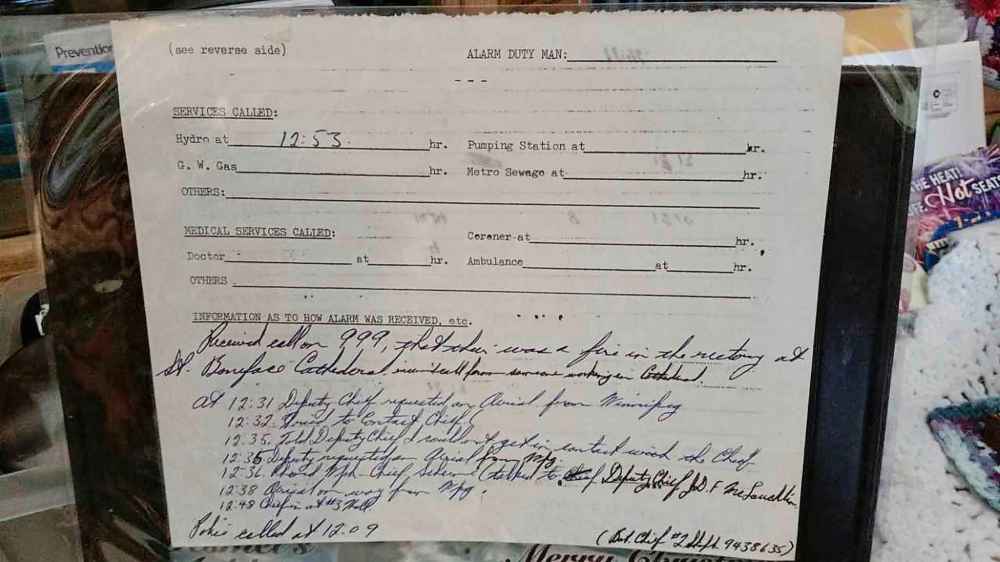 Prevention
(see reverse side)
ALARM DUTY MAN:
- - -
SERVICES CALLED:
Hydro at 12:53. hr. Pumping Station at hr.
G. W. Gas hr. Metro Sewage at hr.
OTHERS:
MEDICAL SERVICES CALLED: Coroner at hr.
Doctor at hr. Ambulance at hr.
OTHERS
INFORMATION AS TO HOW ALARM WAS RECEIVED, etc.
Received call on 999, that their was a fire in the rectory at
St. Boniface Cathederal call from someone working in Cathederal.
At 12:31 Deputy Chief requested an Aerial from Winnipeg
12:32. Tried to Contact Chief
12:35. Told Deputy Chief I could not get in contact with the Chief
12:36 Deputy requested an Aerial from Wpg.
12:36 Wpg. Chief talked to Deputy Chief
12:38 Aerial on way from Wpg.
12:48 Chief in at
Police called at 12.09
(Dist. Chief #2 9438635)
THE HEAT!
Hot SEATS
Merry